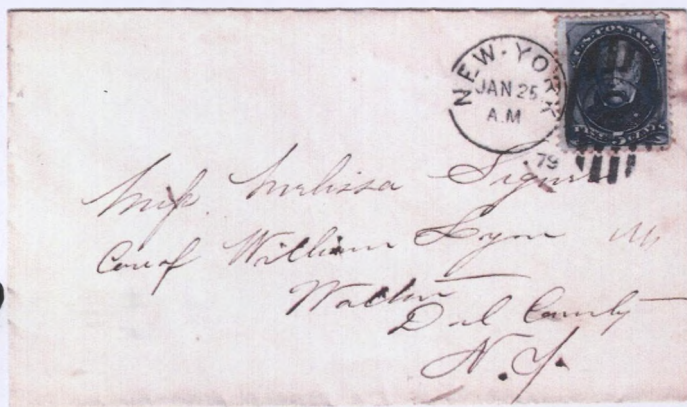 NEW-YORK
JAN 25
A.M
79
U.S. POSTAGE
Miss. Melissa
Care of William Lyon
Walton
Del County
N.Y.